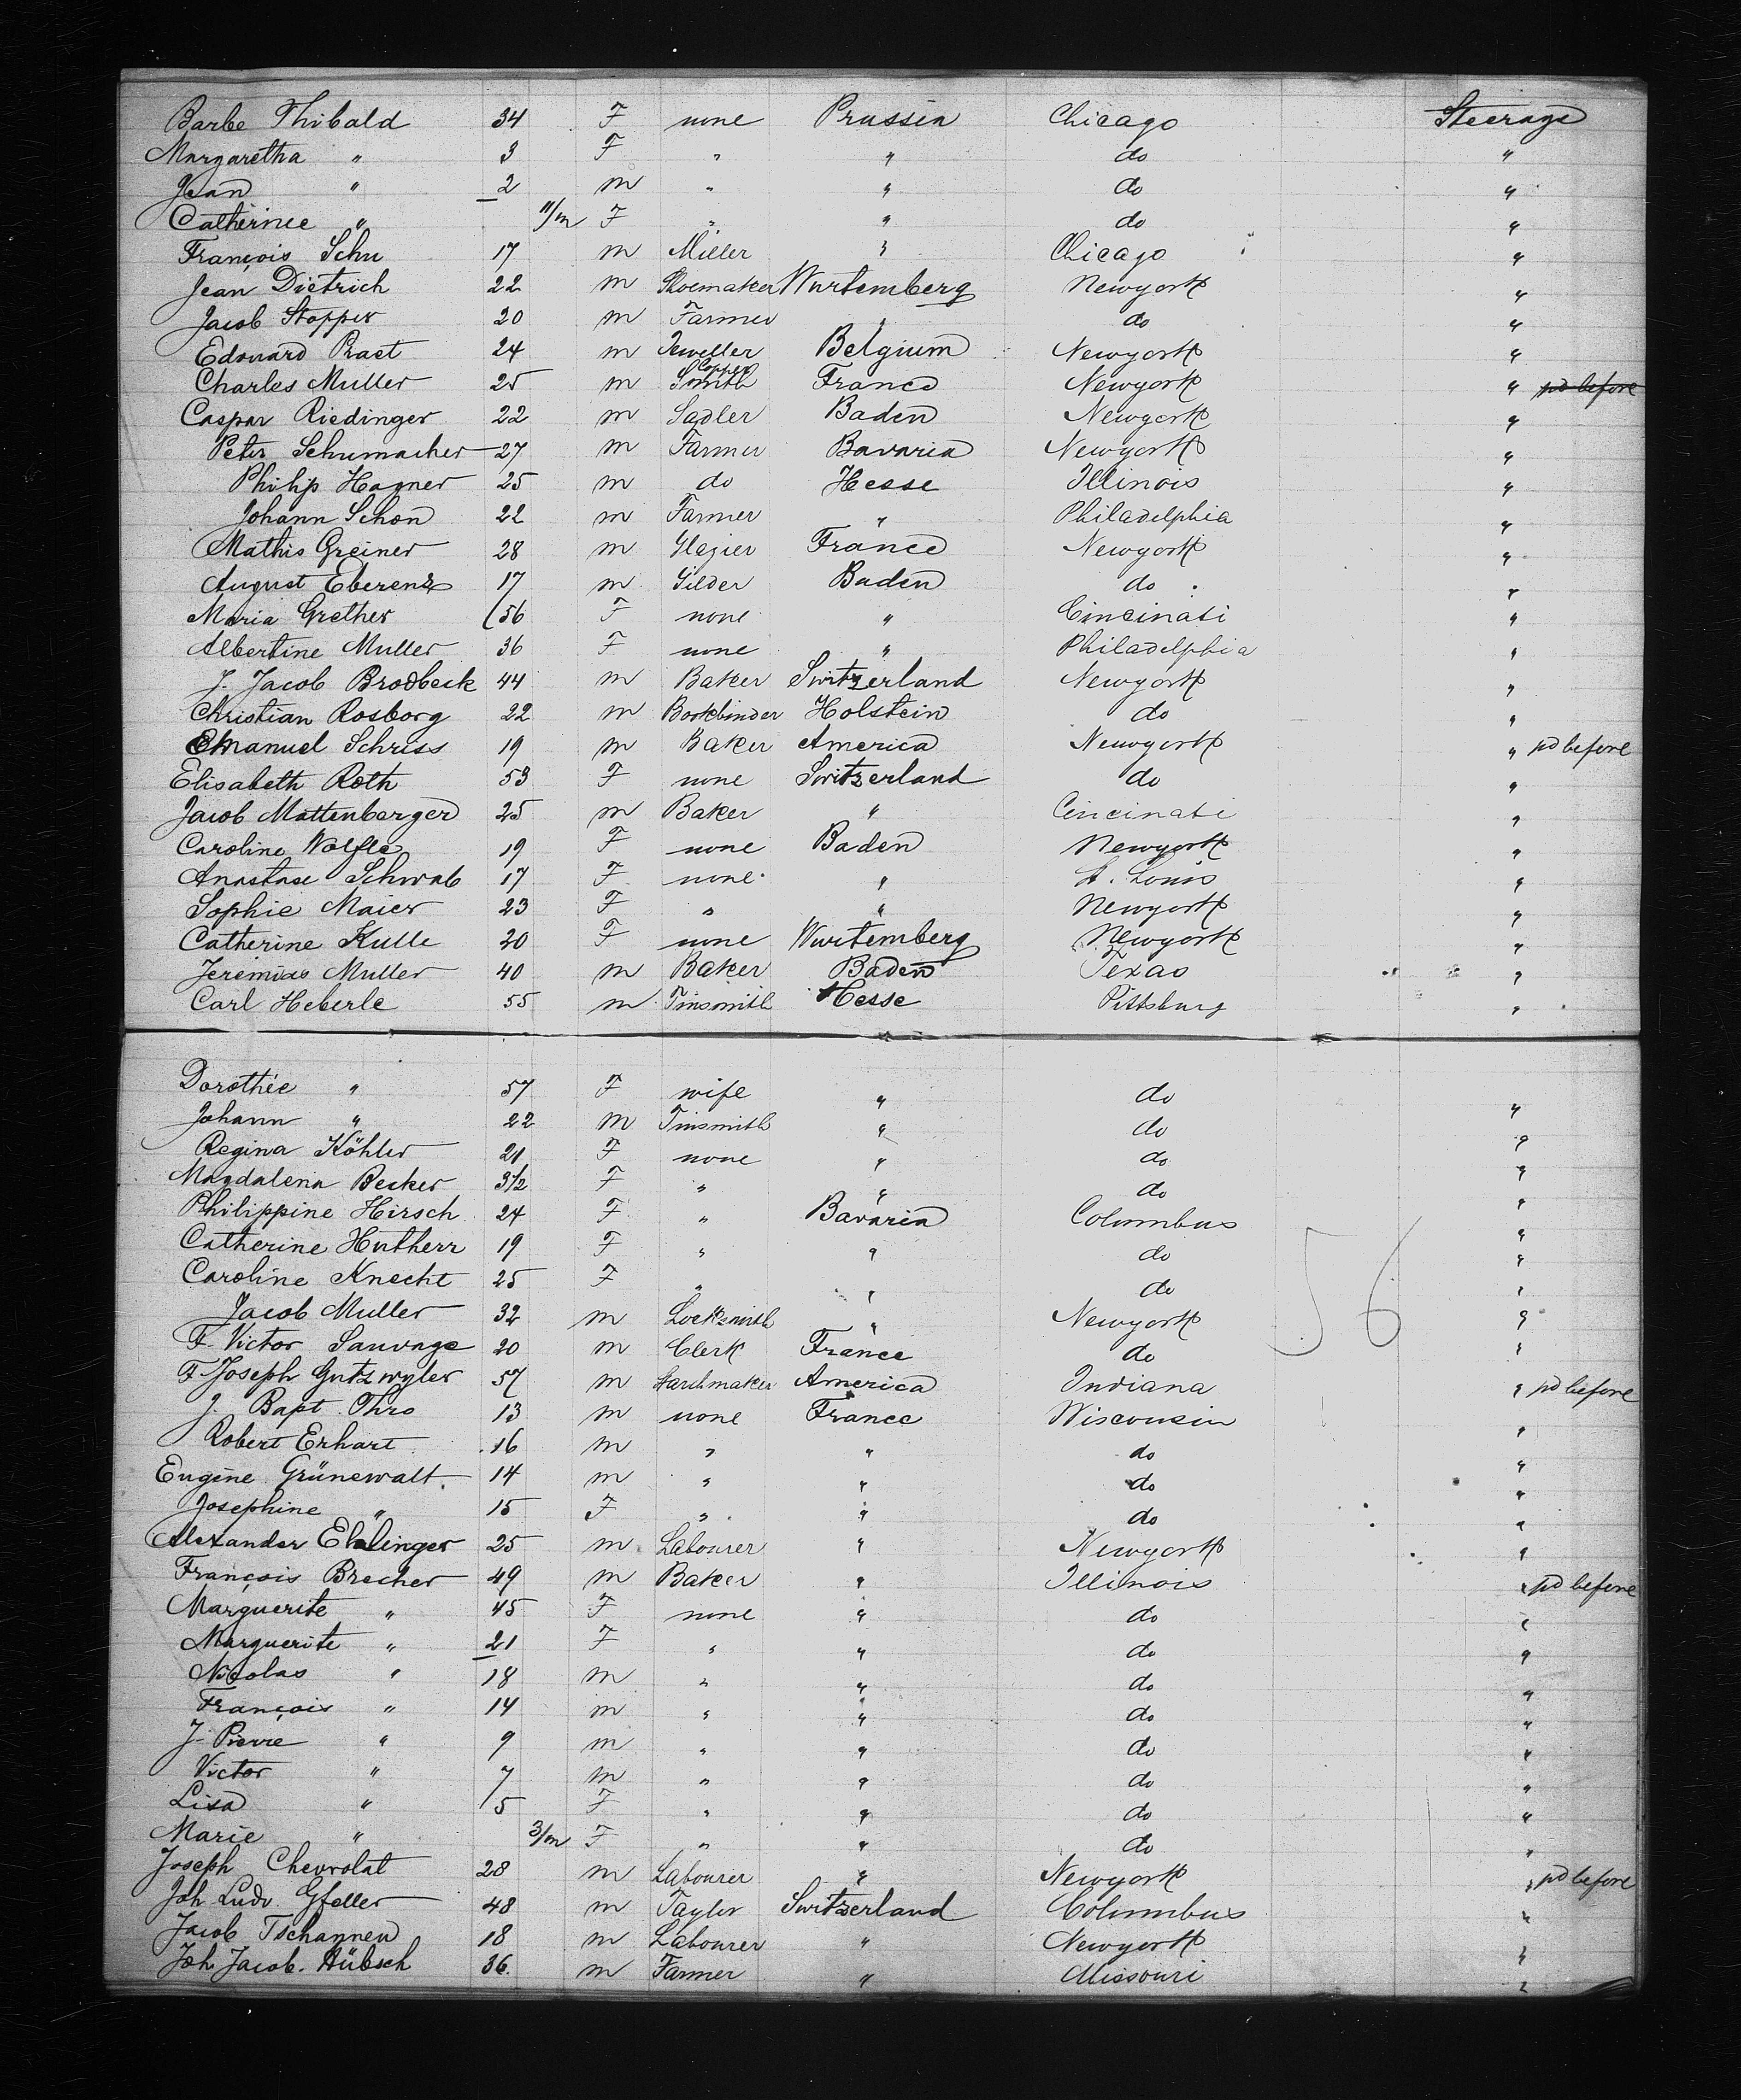 Barbe Thibald 34 F none Prussia Chicago Steerage
Margaretha " 3 F " " do "
Jean " 2 m " " do "
Catherinee " 11/m F " " do "
François Schu 17 m Miller " Chicago "
Jean Dietrich 22 m Shoemaker Wurtemberg Newyork "
Jacob Stopper 20 m Farmer " do "
Edouard Praet 24 m Jeweller Belgium Newyork "
Charles Muller 25 m Copper Smith France Newyork " pd before
Caspar Riedinger 22 m Sadler Baden Newyork "
Peter Schumacher 27 m Farmer Bavaria Newyork "
Philip Hagner 25 m do Hesse Illinois "
Johann Schon 22 m Farmer " Philadelphia "
Mathis Greiner 28 m Glazier France Newyork "
August Eberenz 17 m Gilder Baden do "
Maria Grether 56 F none " Cincinati "
Albertine Muller 36 F none " Philadelphia "
J. Jacob Brodbeck 44 m Baker Switzerland Newyork "
Christian Rosborg 22 m Bookbinder Holstein do "
Emanuel Schriss 19 m Baker America Newyork " pd before
Elisabeth Roth 53 F none Switzerland do "
Jacob Mattenberger 25 m Baker " Cincinati "
Caroline Wolfle 19 F none Baden Newyork "
Anastase Schwab 17 F none " St. Louis "
Sophie Maier 23 F " " Newyork "
Catherine Kulle 20 F none Wurtemberg Newyork "
Jeremias Muller 40 m Baker Baden Texas "
Carl Heberle 55 m Tinsmith Hesse Pittsburg "
Dorothée " 57 F wife " do "
Johann " 22 m Tinsmith " do "
Regina Köhler 21 F none " do "
Magdalena Becker 3 1/2 F " " do "
Philippine Hirsch 24 F " Bavaria Columbus "
Catherine Hutherr 19 F " " do "
Caroline Knecht 25 F " " do "
Jacob Muller 32 m Locksmith " Newyork "
56
F. Victor Sauvage 20 m Clerk France do "
F. Joseph Gutzwyler 57 m America Indiana " pd before
J. Bapt. Thro 13 m none France Wisconsin "
Robert Erhart 16 m " " do "
Eugéne Grünewalt 14 m " " do "
Josephine " 15 F " " do "
Alexander Ehlinger 25 m Labourer " Newyork "
François Brecher 49 m Baker " Illinois " pd before
Marguerite " 45 F none " do "
Marguerite " 21 F " " do "
Nicolas " 18 m " " do "
François " 14 m " " do "
J. Pierre " 9 m " " do "
Victor " 7 m " " do "
Lisa " 5 F " " do "
Marie " 3/m F " " do "
Joseph Chevrolat 28 m Labourer " Newyork " pd before
Joh Ludv. Gfeller 48 m Taylor Switzerland Columbus "
Jacob Tschannen 18 m Labourer " Newyork "
Joh Jacob. Hübsch 36. m Farmer " Missouri "